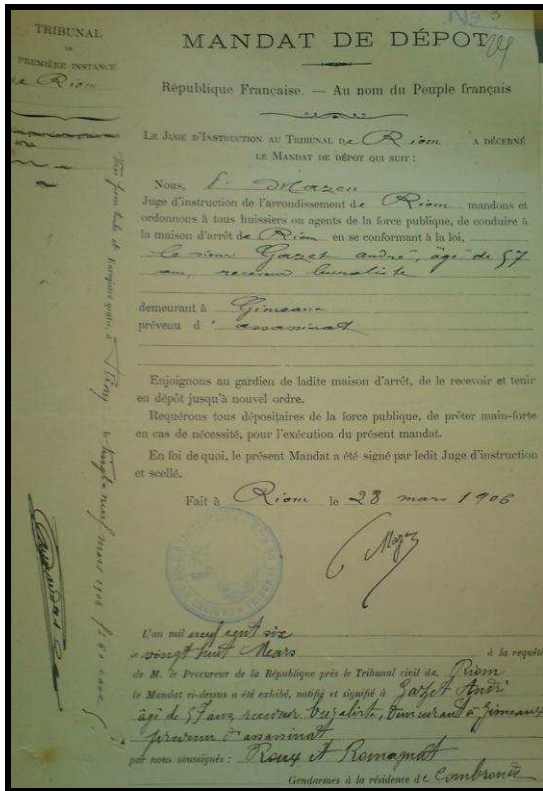 No 3
TRIBUNAL
DE
PREMIÈRE INSTANCE
de Riom
MANDAT DE DÉPOT
République Française. — Au nom du Peuple français
LE JUGE D'INSTRUCTION AU TRIBUNAL DE Riom A DÉCERNÉ
LE MANDAT DE DÉPOT QUI SUIT :
Nous, E. Mazen
Juge d'instruction de l'arrondissement de Riom mandons et
ordonnons à tous huissiers ou agents de la force publique, de conduire à
la maison d'arrêt de Riom en se conformant à la loi,
le sieur Gazet André, âgé de 57
ans, receveur buraliste
demeurant à Gimeaux
prévenu d'assassinat
Enjoignons au gardien de ladite maison d'arrêt, de le recevoir et tenir
en dépôt jusqu'à nouvel ordre.
Requérons tous dépositaires de la force publique, de prêter main-forte
en cas de nécessité, pour l'exécution du présent mandat.
En foi de quoi, le présent Mandat a été signé par ledit Juge d'instruction
et scellé.
Fait à Riom le 28 mars 1906
L'an mil neuf cent six
le vingt huit Mars à la requête
de M. le Procureur de la République près le Tribunal civil de Riom
le Mandat ci-dessus a été exhibé, notifié et signifié à Gazet André
âgé de 57 ans receveur Buraliste, demeurant à Gimeaux
prévenu d'assassinat
par nous soussignés : Roux et Romagnat
Gendarmes à la résidence de Combronde